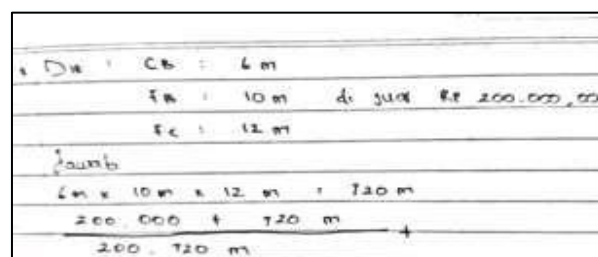 Dik : CB : 6 m
FB : 10 m di jual Rp 200.000,00
FC : 12 m
Jawab
6m x 10 m x 12 m : 720 m
200.000 + 720 m +
200.720 m